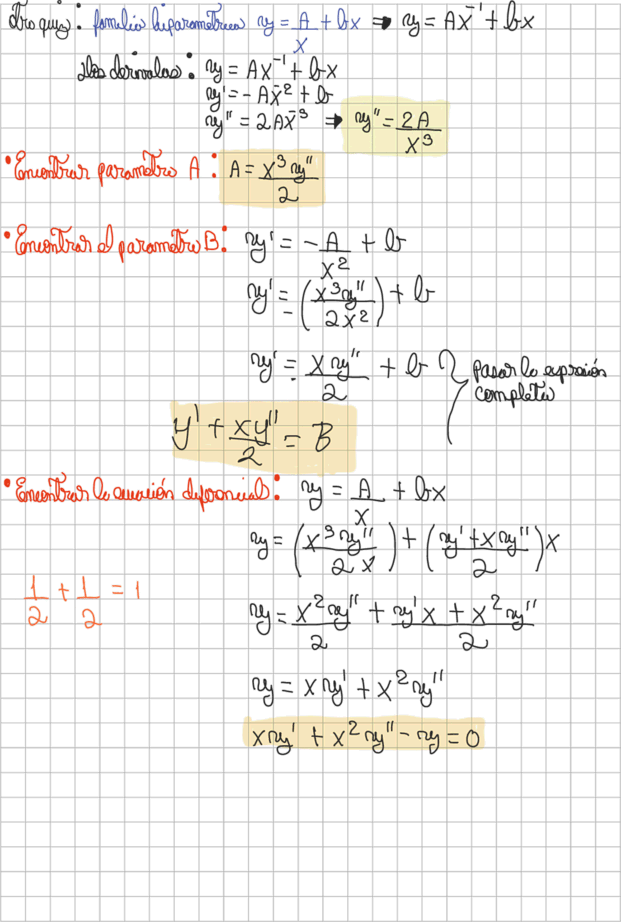 Otro quiz: familia biparametrica y = A/x + bx ⇒ y = Ax⁻¹ + bx
2das derivadas: y = Ax⁻¹ + bx
y' = -Ax⁻² + b
y'' = 2Ax⁻³ ⇒ y'' = 2A/x³
• Encontrar parametro A: A = x³y''/2
• Encontrar el parametro B: y' = -A/x² + b
y' = -(x³y''/2x²) + b
y' = -xy''/2 + b } pasar la expresión completa
y' + xy''/2 = B
• Encontrar la ecuación diferencial: y = A/x + bx
y = (x³y''/2x) + (y' + xy''/2)x
1/2 + 1/2 = 1
y = x²y''/2 + y'x + x²y''/2
y = xy' + x²y''
xy' + x²y'' - y = 0